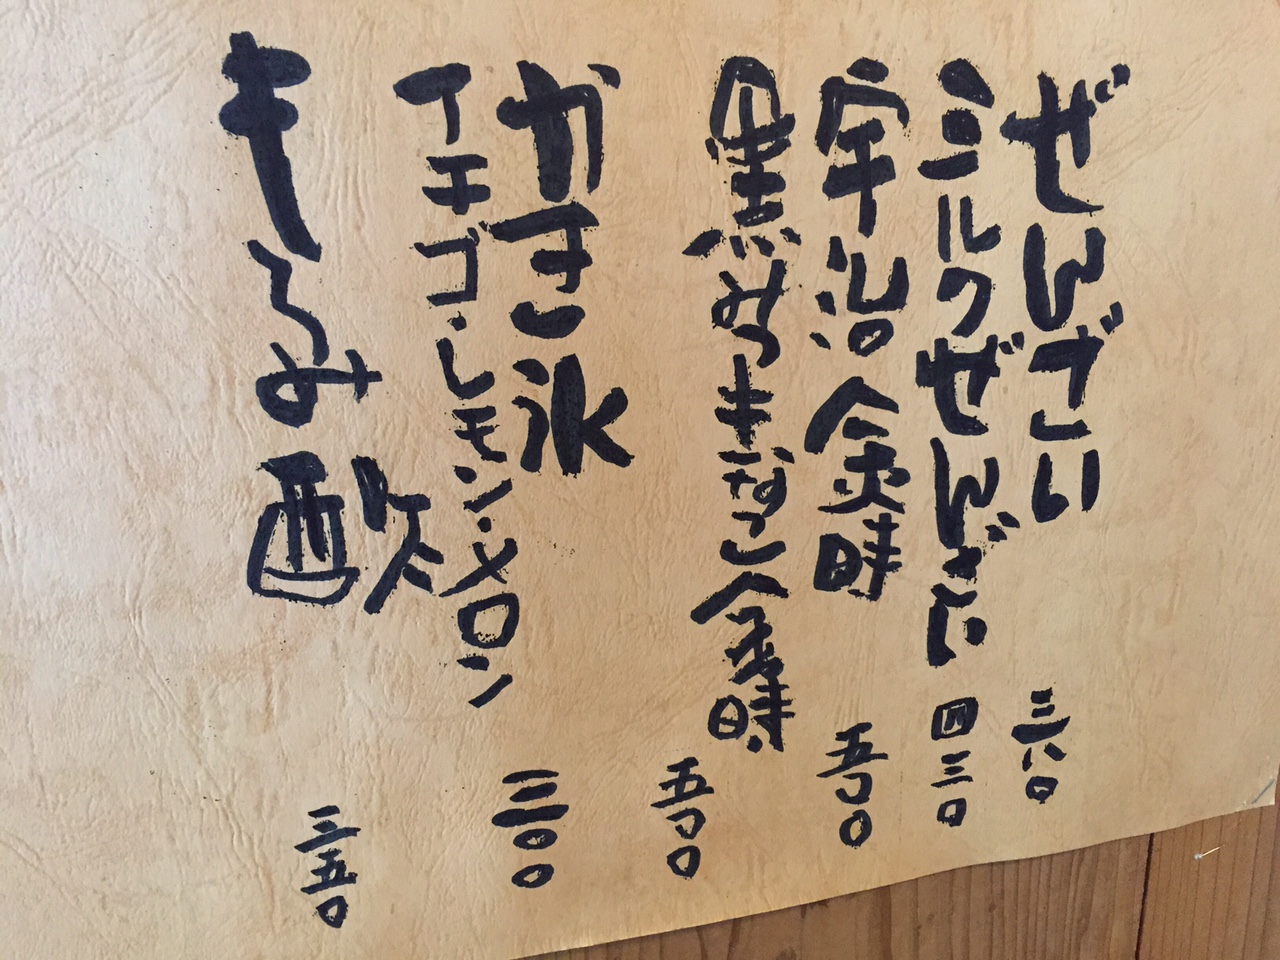 ぜんざい 三六〇
ミルクぜんざい 四三〇
宇治金時 五〇〇
黒みつきなこ金時 五〇〇
かき氷 三〇〇
イチゴ・レモン・メロン
もろみ酢 三五〇